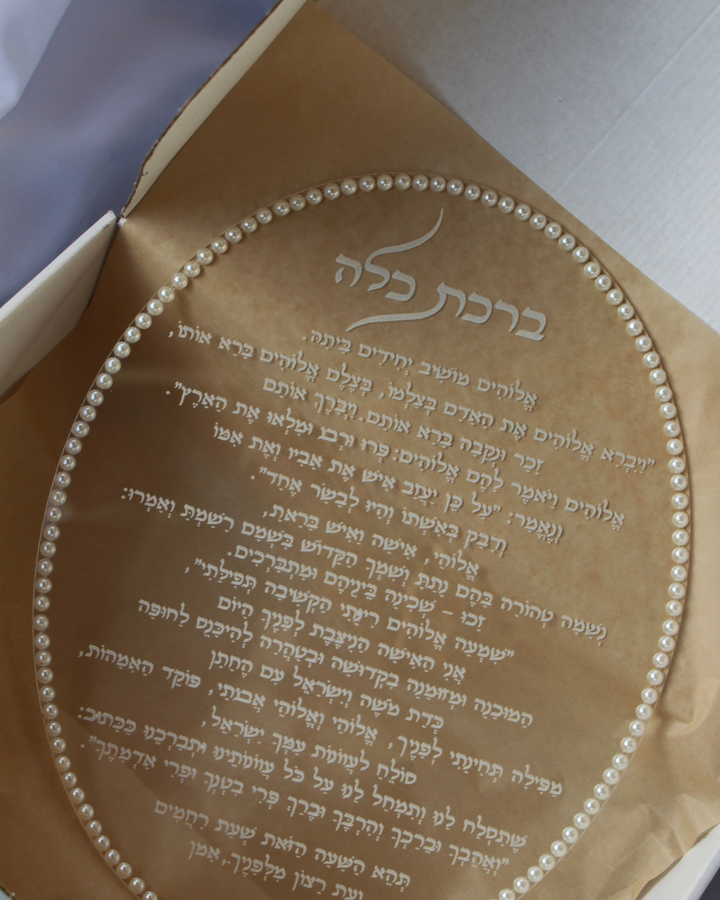 ברכת כלה
אֱלוֹהִים מוֹשִׁיב יְחִידִים בַּיְתָה.
"וַיִּבְרָא אֱלוֹהִים אֶת הָאָדָם בְּצַלְמוֹ, בְּצֶלֶם אֱלוֹהִים בָּרָא אוֹתוֹ,
זָכָר וּנְקֵבָה בָּרָא אוֹתָם. וַיְבָרֶךְ אוֹתָם
אֱלוֹהִים וַיֹּאמֶר לָהֶם אֱלוֹהִים: פְּרוּ וּרְבוּ וּמִלְאוּ אֶת הָאָרֶץ".
וְנֶאֱמַר: "עַל כֵּן יַעֲזֹב אִישׁ אֶת אָבִיו וְאֶת אִמּוֹ
וְדָבַק בְּאִשְׁתּוֹ וְהָיוּ לְבָשָׂר אֶחָד".
אֱלוֹהַי, אִישָּׁה וְאִישׁ בָּרָאתָ,
נְשָׁמָה טְהוֹרָה בָּהֶם נָתַתָּ וְשִׁמְךָ הַקָּדוֹשׁ בִּשְׁמָם רָשַׁמְתָּ וְאָמְרוּ:
זָכוּ - שְׁכִינָה בֵּינֵיהֶם וּמִתְבָּרְכִים.
"שִׁמְעָה אֱלוֹהִים רִינָּתִי הַקְשִׁיבָה תְּפִילָּתִי",
אֲנִי הָאִישָּׁה הַנִּיצֶּבֶת לְפָנֶיךָ הַיּוֹם
הַמּוּכָנָה וּמְזוּמֶּנָה בִּקְדוּשָּׁה וּבְטָהֳרָה לְהִיכָּנֵס לַחוּפָּה
כְּדַת מֹשֶׁה וְיִשְׂרָאֵל עִם הֶחָתָן
מַפִּילָה תְּחִינָּתִי לְפָנֶיךָ, אֱלוֹהַי וֵאֱלוֹהֵי אֲבוֹתַי, פּוֹקֵד הָאִמָּהוֹת,
סוֹלֵחַ לַעֲווֹנוֹת עַמְּךָ יִשְׂרָאֵל,
שֶׁתִּסְלַח לָנוּ וְתִמְחַל לָנוּ עַל כֹּל עֲווֹנוֹתֵינוּ וּתְבָרְכֵנוּ כַּכָּתוּב:
"וַאֲהֵבְךָ וּבֵרַכְךָ וְהִרְבֶּךָ וּבֵרַךְ פְּרִי בִטְנְךָ וּפְרִי אַדְמָתֶךָ".
תְּהֵא הַשָּׁעָה הַזֹּאת שְׁעַת רַחֲמִים
וְעֵת רָצוֹן מִלְּפָנֶיךָ, אָמֵן